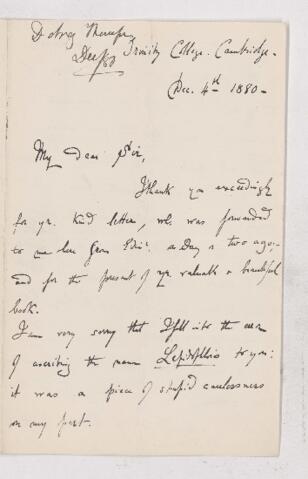 D'Arcy Thompson
Trinity College. Cambridge.
Dec. 4th 1880.
My dear Sir,
I thank you exceedingly
for yr. kind letter, wh. was forwarded
to me here from Edinr. a day or two ago;
and for the present of yr. valuable & beautiful
book.
I am very sorry that I fell into the error
of ascribing the name to you:
it was a piece of stupid carelessness
on my part.